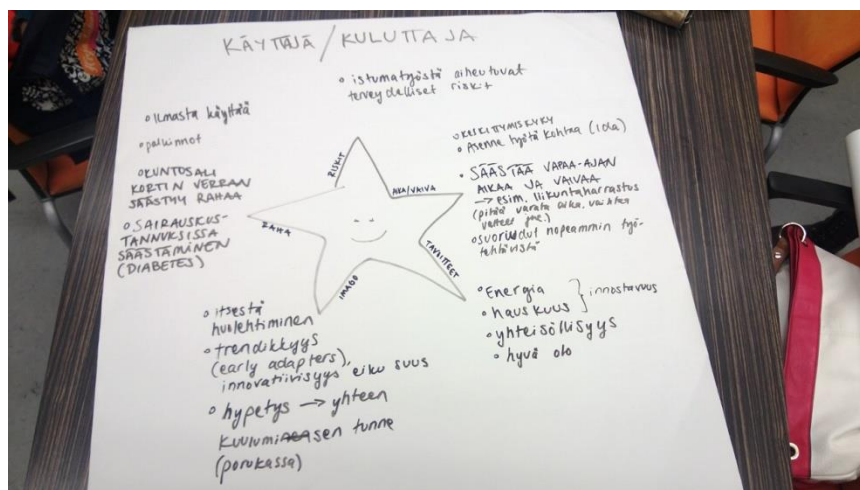 KÄYTTÄJÄ / KULUTTAJA
◦ istumatyöstä aiheutuvat
terveydelliset riskit
◦ Ilmasta käyttää
◦ palkinnot
◦ KUNTOSALI
KORTIN VERRAN
SÄÄSTYY RAHAA
◦ SAIRAUSKUS-
TANNUKSISSA
SÄÄSTÄMINEN
(DIABETES)
RISKIT
AIKA/VAIVA
RAHA
TAVOITTEET
IMAGO
◦ KESKITTYMISKYKY
◦ Asenne työtä kohtaa (iloa)
◦ SÄÄSTÄÄ VAPAA-AJAN
AIKAA JA VAIVAA
→ esim. liikuntaharrastus
(pitää varata aika, vaihtaa
vaatteet jne.)
◦ suoriudut nopeammin työ-
tehtävistä
◦ Energia
◦ hauskuus
} innostavuus
◦ yhteisöllisyys
◦ hyvä olo
◦ itsestä
huolehtiminen
◦ trendikkyys
(early adapters),
innovatiivisyys eiku suus
◦ hypetys → yhteen
kuulumisen tunne
(porukassa)